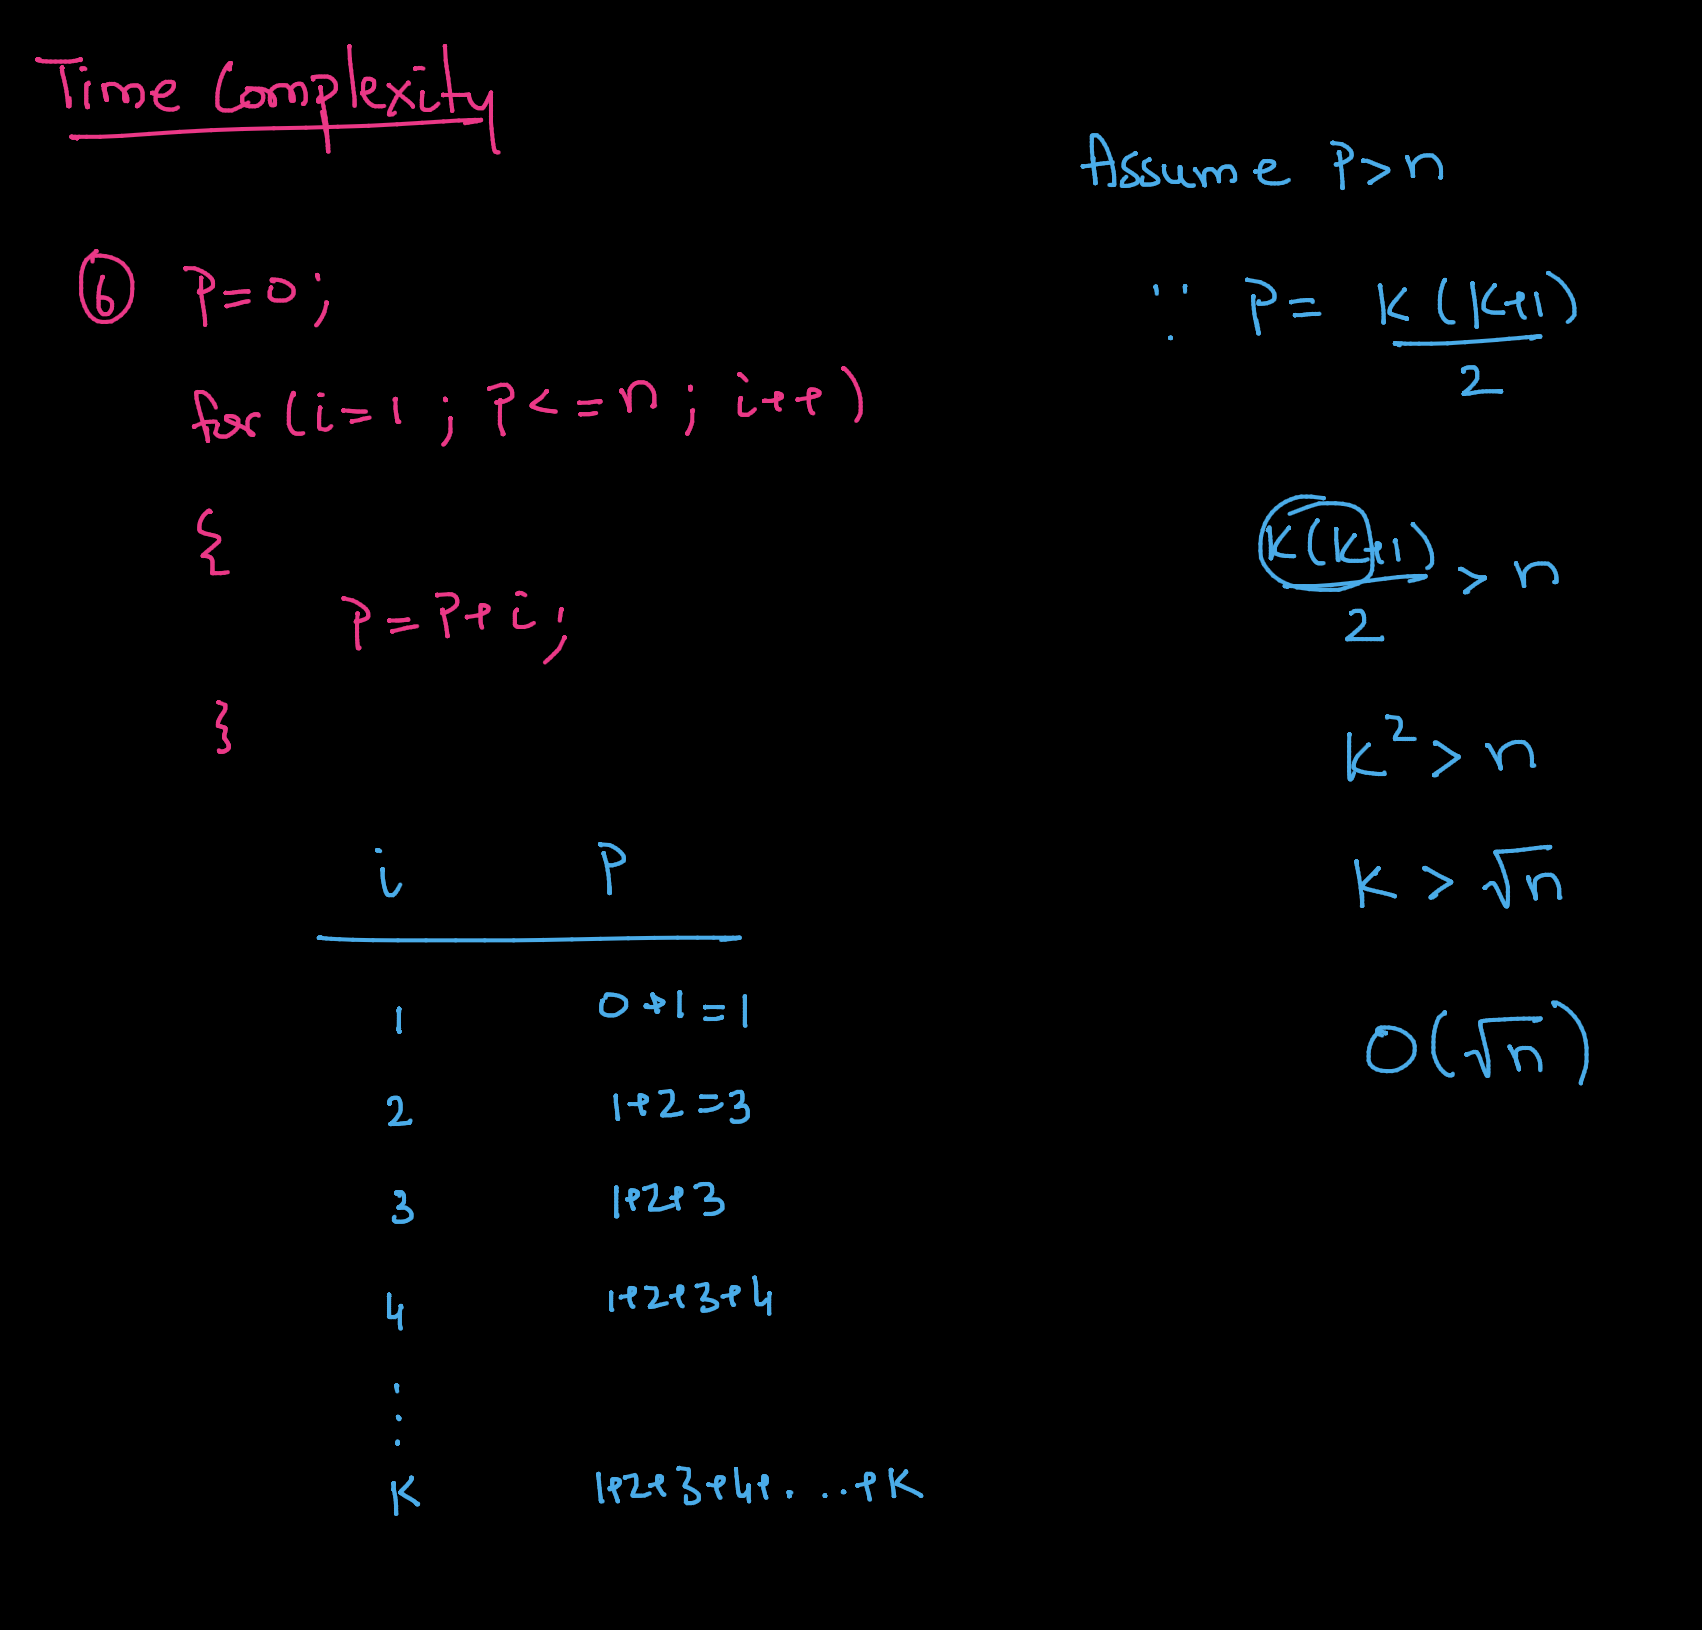 Time Complexity
6 P=0;
for (i=1; P<=n; i++)
{
P=P+i;
}
i P
1 0+1=1
2 1+2=3
3 1+2+3
4 1+2+3+4
⋮
K 1+2+3+4+....+K
Assume P>n
∵ P= K(K+1)
2
K(K+1) > n
2
K² > n
K > √n
O(√n)